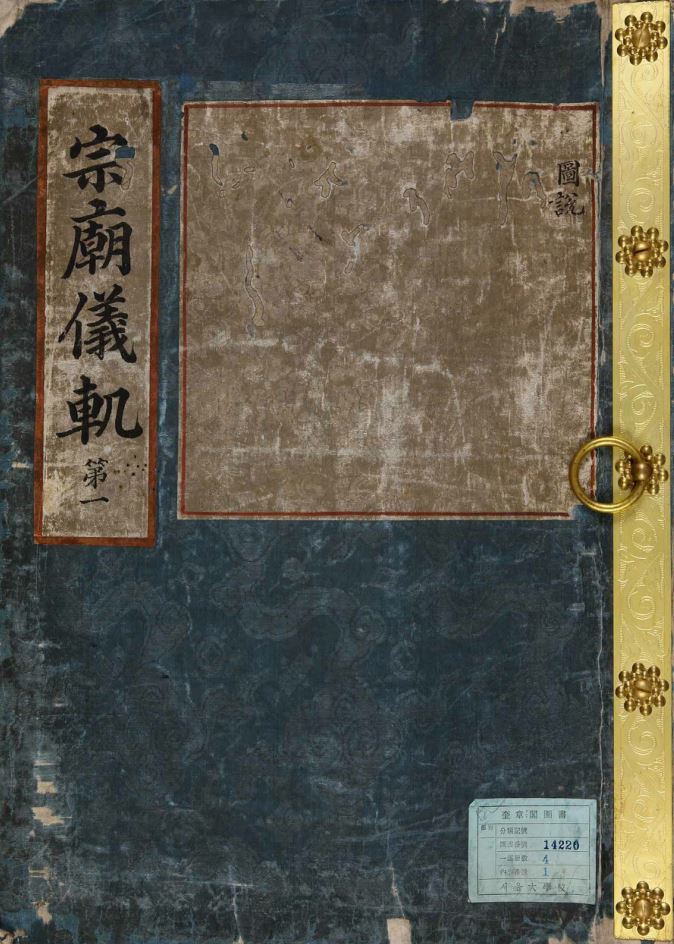 宗廟儀軌 第一
圖說
奎章閣圖書
分類記號
圖書番號 14220
一部冊數 4
內番號 1
서울大學校